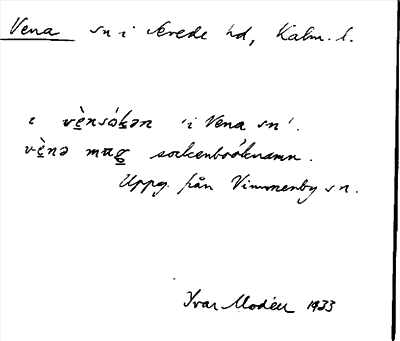 Vena sn i Sevede hd, Kalm. l.
i vènsókən 'i Vena sn'.
vènə mag sockenbo
Uppg. från Vimmerby sn.
Ivar Modéer 1933